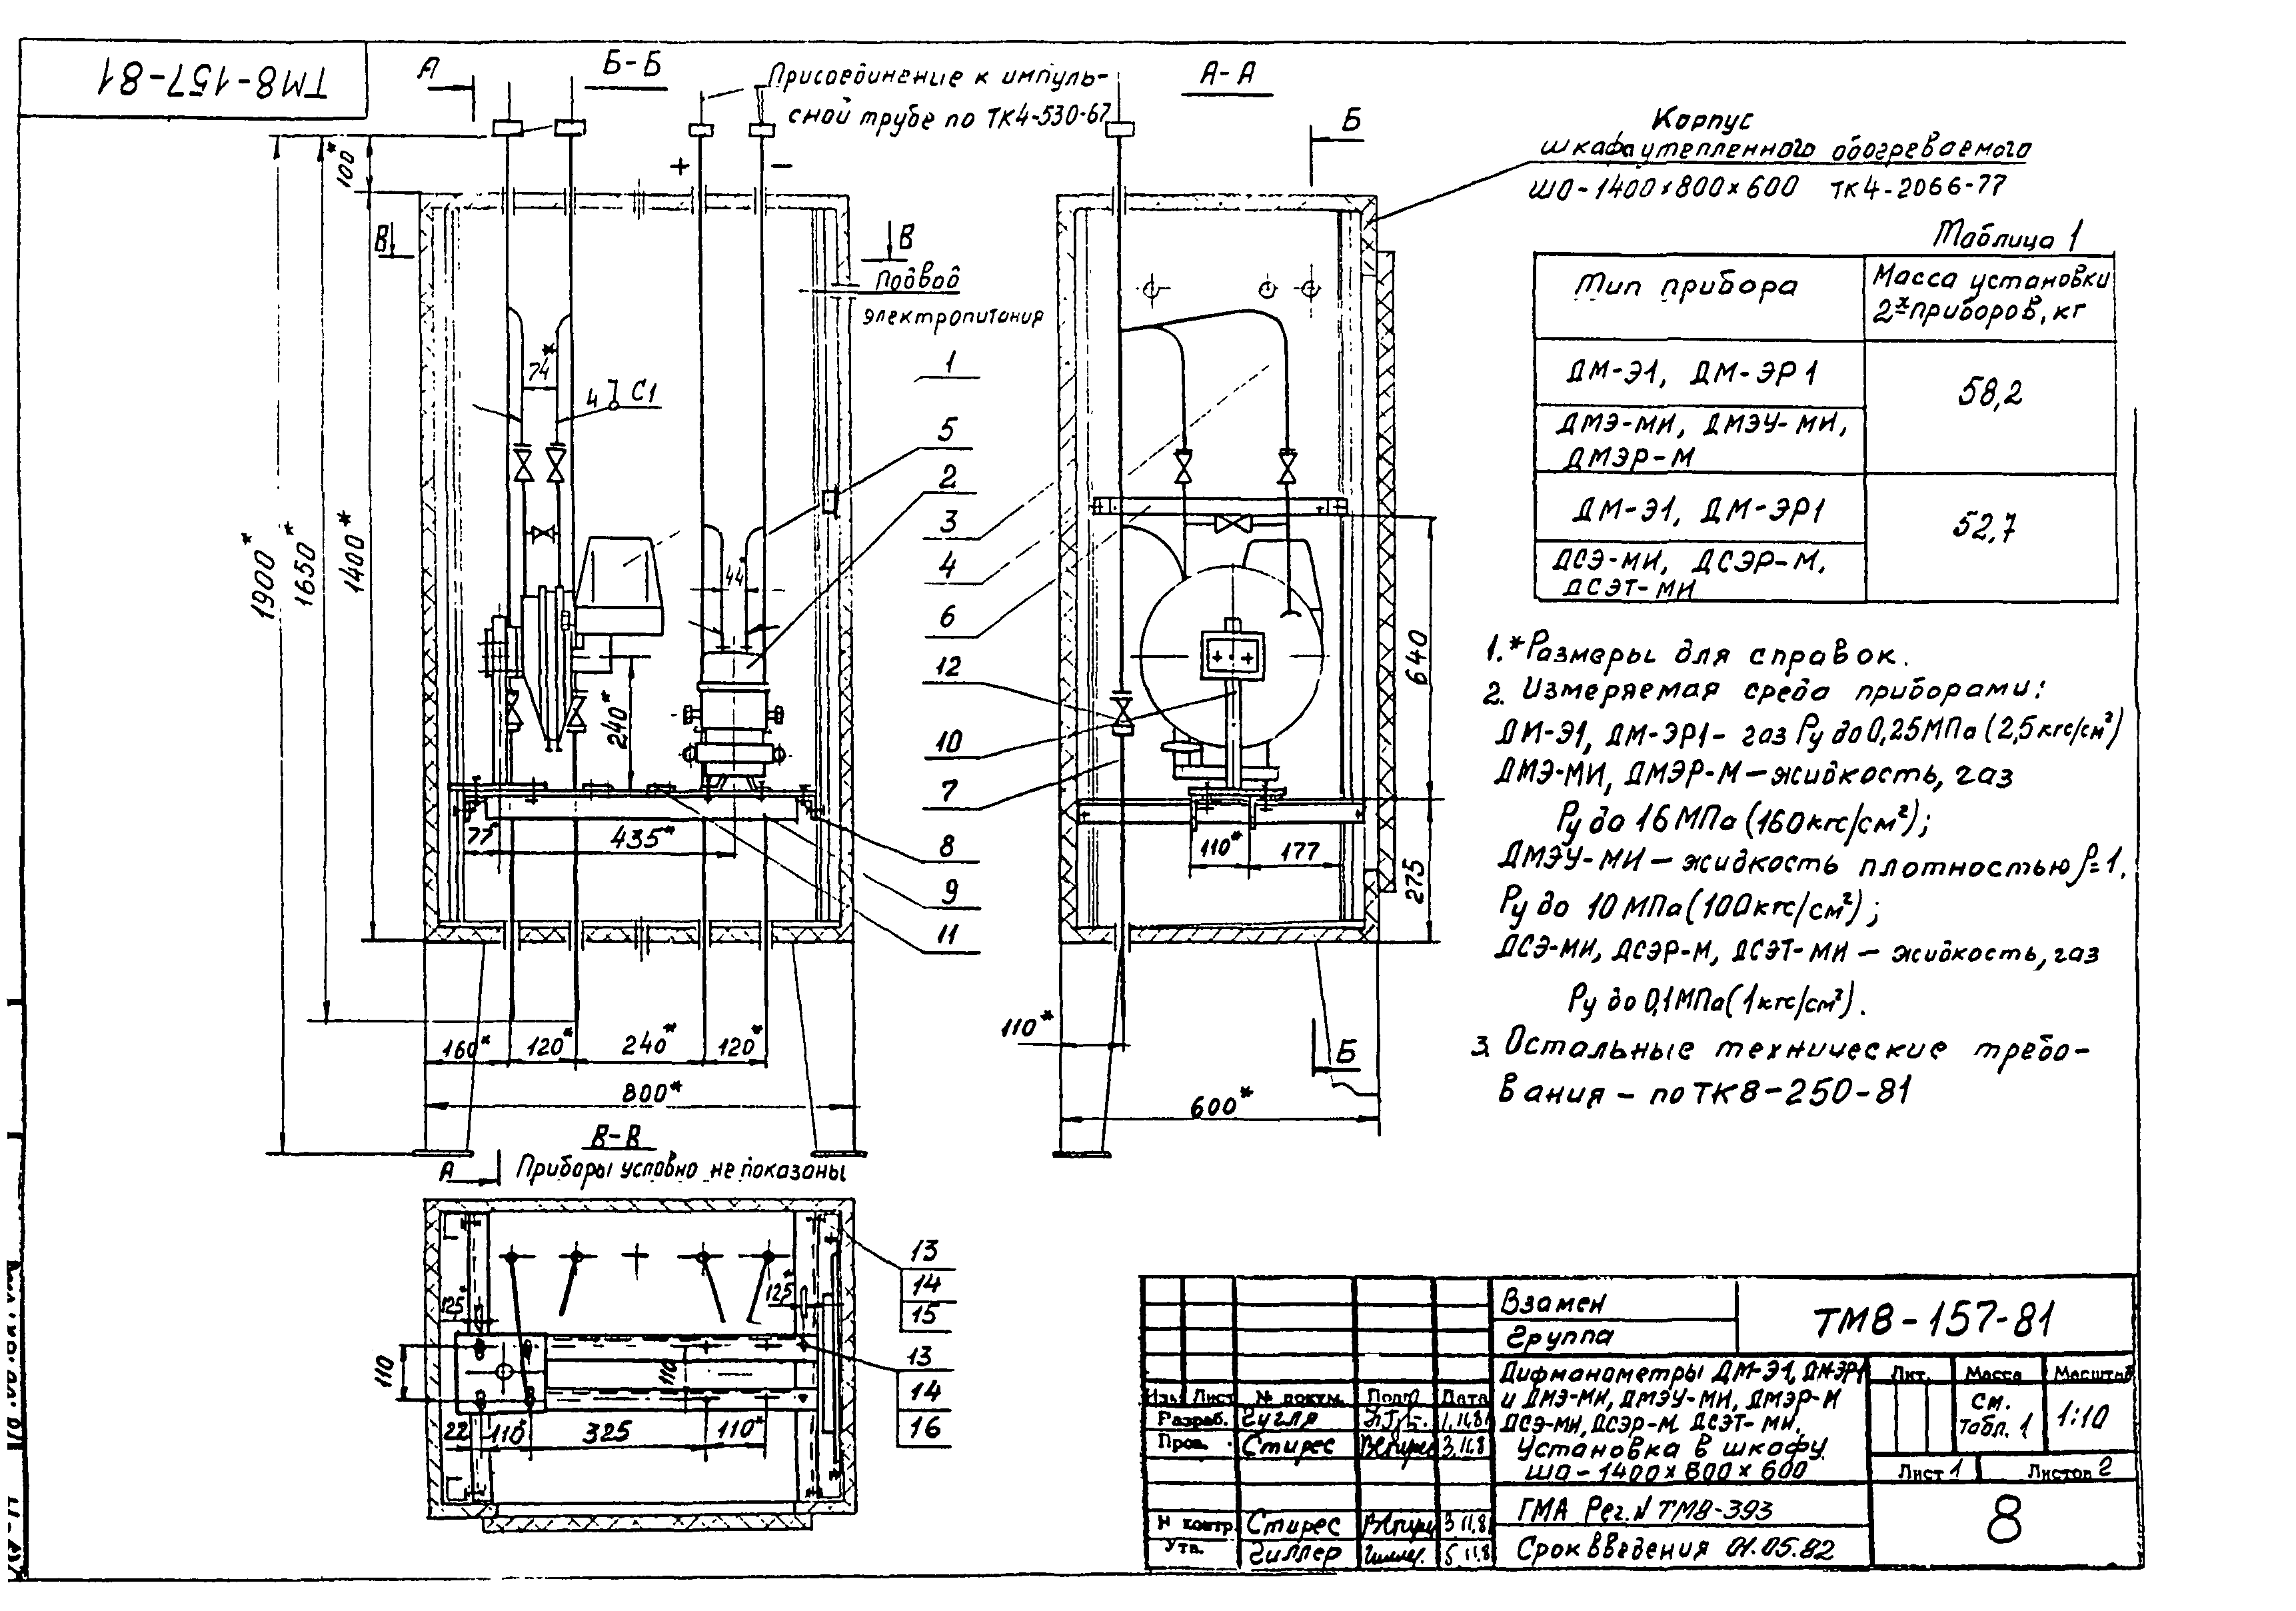 ТМ8-157-81
А
Б-Б
Присоединение к импуль-
сной трубе по ТК4-530-67
А-А
Б
Корпус
шкафа утепленного обогреваемого
ШО-1400×800×600 ТК4-2066-77
100*
+
-
В
В
Подвод
электропитания
74*
4 С1
44*
1900*
1650*
1400*
240*
77*
435*
160*
120*
240*
120*
800*
1
5
2
3
4
6
12
10
7
8
9
11
640
275
110*
177
110*
Б
600*
Таблица 1
Тип прибора
Масса установки
2х приборов, кг
ДМ-Э1, ДМ-ЭР1
58,2
ДМЭ-МИ, ДМЭУ-МИ,
ДМЭР-М
ДМ-Э1, ДМ-ЭР1
52,7
ДСЭ-МИ, ДСЭР-М,
ДСЭТ-МИ
1.*Размеры для справок.
2. Измеряемая среда приборами:
ДМ-Э1, ДМ-ЭР1- газ Ру до 0,25МПа (2,5кгс/см²)
ДМЭ-МИ, ДМЭР-М-жидкость, газ
Ру до 16 МПа (160кгс/см²);
ДМЭУ-МИ - жидкость плотностью ρ=1.
Ру до 10 МПа (100кгс/см²);
ДСЭ-МИ, ДСЭР-М, ДСЭТ-МИ - жидкость, газ
Ру до 0,1МПа (1кгс/см²).
3. Остальные технические требо-
вания - по ТК8-250-81
В-В
А
Приборы условно не показаны
125*
125*
110
110
22
110*
325
110*
13
14
15
13
14
16
Взамен
Группа
ТМ8-157-81
Дифманометры ДМ-Э1, ДМ-ЭР1
и ДМЭ-МИ, ДМЭУ-МИ, ДМЭР-М
ДСЭ-МИ, ДСЭР-М, ДСЭТ-МИ.
Установка в шкафу
ШО-1400×800×600
Лит. Масса Масштаб
см.
табл. 1
1:10
Лист 1 Листов 2
Изм Лист № докум. Подп Дата
Разраб. Гугля
Пров. Стирес
Н контр. Стирес
Утв. Гиллер
ГМА Рег. N ТМ8-393
Срок введения 01.05.82
8